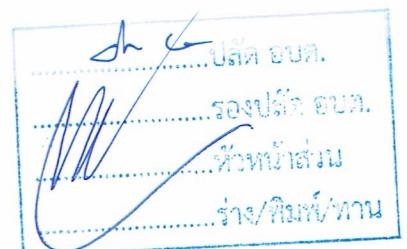 ปลัด อบต.
รองปลัด อบต.
หัวหน้าส่วน
ร่าง/พิมพ์/ทาน